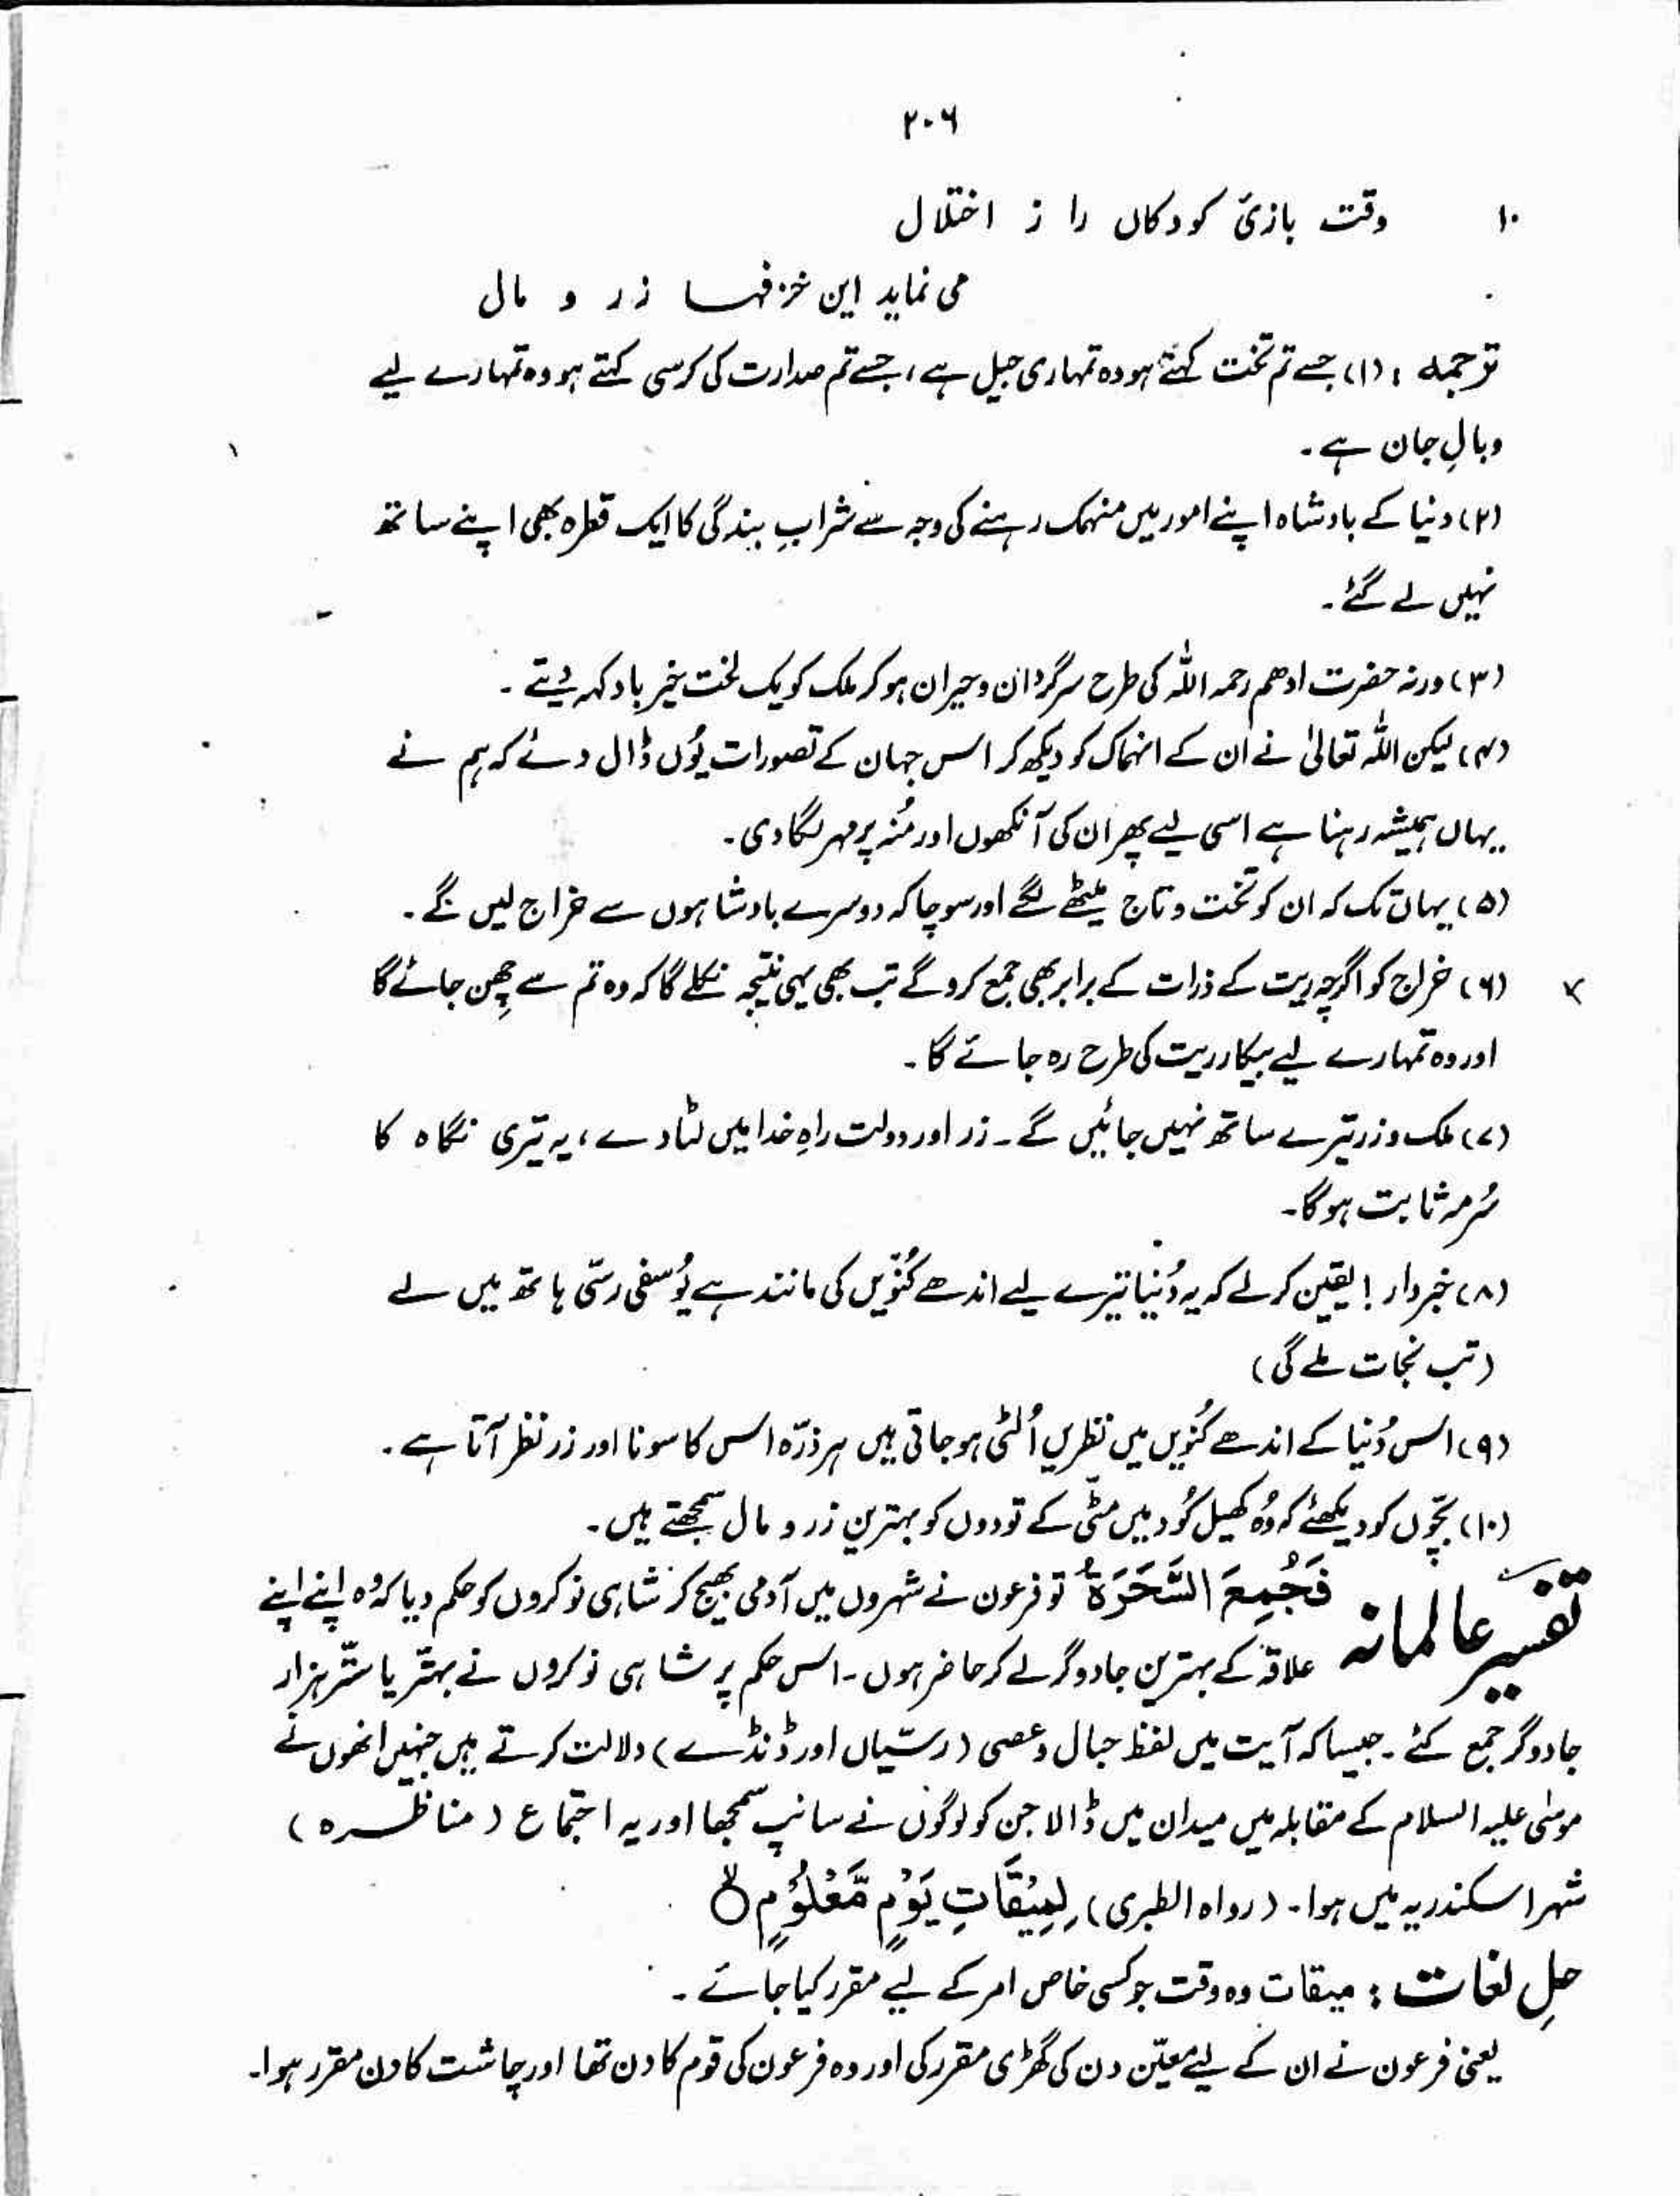 ۲۰۶
۱۰ وقت بازیٔ کودکاں را ز اختلال
می نماید این خزفہا زر و مال
ترجمہ : (۱) جسے تم تخت کہتے ہو وہ تمہاری جیل ہے ، جسے تم صدارت کی کرسی کہتے ہو وہ تمہارے لیے
وبالِ جان ہے ۔
(۲) دنیا کے بادشاہ اپنے امور میں منہمک رہنے کی وجہ سے شرابِ بندگی کا ایک قطرہ بھی اپنے ساتھ
نہیں لے گئے ۔
(۳) ورنہ حضرت ادھم رحمہ اللہ کی طرح سرگردان و حیران ہو کر ملک کو یک لخت خیر باد کہہ دیتے ۔
(۴) لیکن اللہ تعالیٰ نے ان کے انہماک کو دیکھ کر اس جہان کے تصورات یُوں ڈال دئے کہ ہم نے
یہاں ہمیشہ رہنا ہے اسی لیے پھر ان کی آنکھوں اور مُنہ پر مہر لگا دی ۔
(۵) یہاں تک کہ ان کو تخت و تاج میٹھے لگے اور سوچا کہ دوسرے بادشاہوں سے خراج لیں گے ۔
(۶) خراج کو اگرچہ ریت کے ذرات کے برابر بھی جمع کرو گے تب بھی یہی نتیجہ نکلے گا کہ وہ تم سے چھن جائے گا
اور وہ تمہارے لیے بیکار ریت کی طرح رہ جائے گا ۔
(۷) ملک و زر تیرے ساتھ نہیں جائیں گے ۔ زر اور دولت راہِ خدا میں لٹا دے ، یہ تیری نگاہ کا
سُرمہ ثابت ہوگا ۔
(۸) خبردار ! یقین کر لے کہ یہ دُنیا تیرے لیے اندھے کنُویں کی مانند ہے یُوسفی رسّی ہاتھ میں لے
(تب نجات ملے گی)
(۹) اس دُنیا کے اندھے کنُویں میں نظریں اُلٹی ہو جاتی ہیں ہر ذرّہ اس کا سونا اور زر نظر آتا ہے ۔
(۱۰) بچّوں کو دیکھئے کہ وُہ کھیل کُود میں مٹّی کے تودوں کو بہترین زر و مال سمجھتے ہیں ۔
تفسیر عالمانہ فَجُمِعَ السَّحَرَۃُ تو فرعون نے شہروں میں آدمی بھیج کر شاہی نوکروں کو حکم دیا کہ وُہ اپنے اپنے
علاقہ کے بہترین جادوگر لے کر حاضر ہوں ۔ اس حکم پر شاہی نوکروں نے بہتّر یا ستّر ہزار
جادوگر جمع کئے ۔ جیسا کہ آیت میں لفظ حبال و عصی (رسّیاں اور ڈنڈے) دلالت کرتے ہیں جنہیں انھوں نے
موسٰی علیہ السلام کے مقابلہ میں میدان میں ڈالا جن کو لوگوں نے سانپ سمجھا اور یہ اجتماع (مناظرہ)
شہر اسکندریہ میں ہوا ۔ (رواہ الطبری) لِمِیْقَاتِ یَوْمٍ مَّعْلُوْمٍ ۙ
حلِ لغات : میقات وہ وقت جو کسی خاص امر کے لیے مقرر کیا جائے ۔
یعنی فرعون نے ان کے لیے معیّن دن کی گھڑی مقرر کی اور وہ فرعون کی قوم کا دن تھا اور چاشت کا دن مقرر ہوا ۔